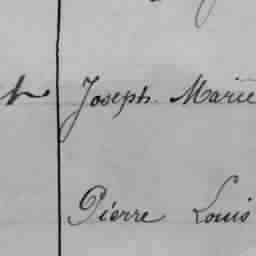 Joseph Marie
Pierre Louis